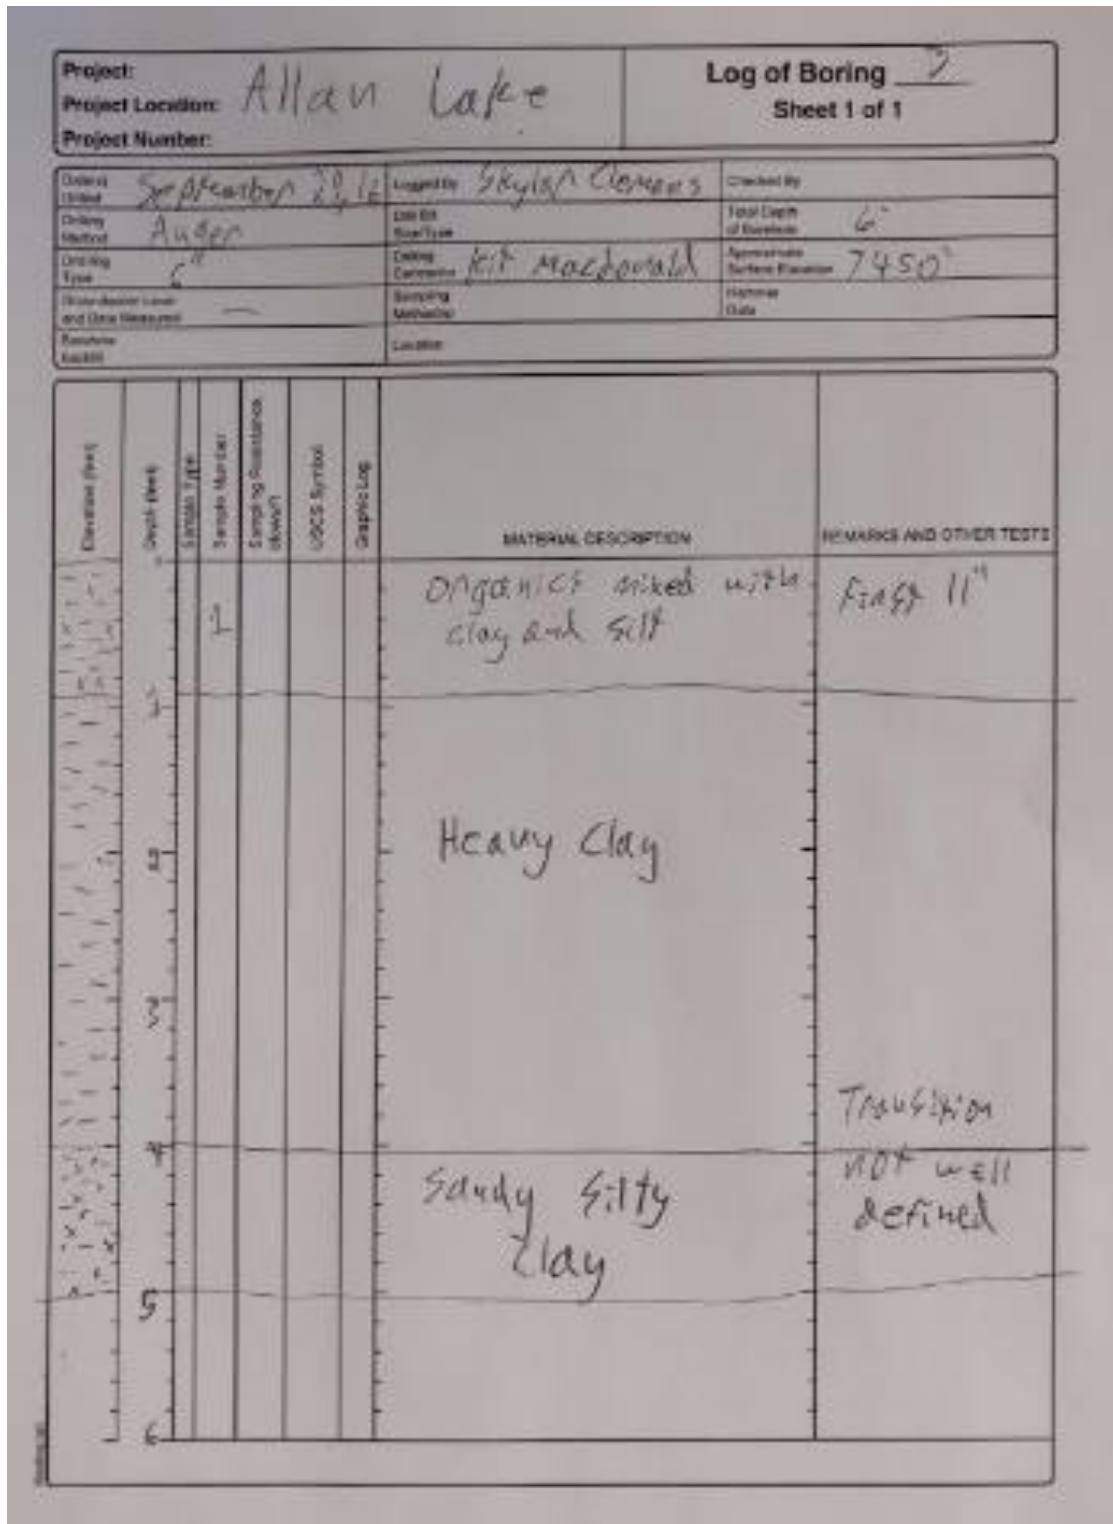 Project:
Project Location: Allan Lake
Project Number:
Log of Boring
Sheet 1 of 1
Date(s) Drilled September
Logged By Skylar Clemens
Checked By
Drilling Method Auger
Drill Bit Size/Type
Total Depth of Borehole 6'
Drill Rig Type 6"
Drilling Contractor Kit Macdonald
Approximate Surface Elevation 7450'
Groundwater Level and Date Measured —
Sampling Method(s)
Hammer Data
Borehole Backfill
Location
Elevation (feet)
Depth (feet)
Sample Type
Sample Number
Sampling Resistance,
USCS Symbol
Graphic Log
MATERIAL DESCRIPTION
REMARKS AND OTHER TESTS
1
Organics mixed with
clay and silt
First 11"
1
2
Heavy Clay
3
Transition
4
not well
defined
Sandy Silty
Clay
5
6